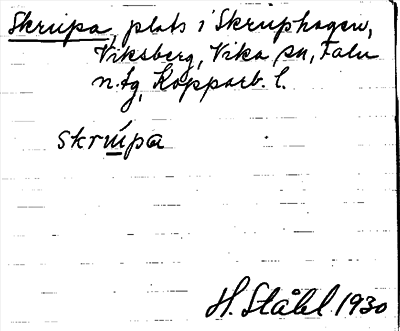 Skrupa, plats i Skruphagen,
Viksberg, Vika sn, Falu
n. tg, Kopparb. l.
skrùpa
H. Ståhl 1930